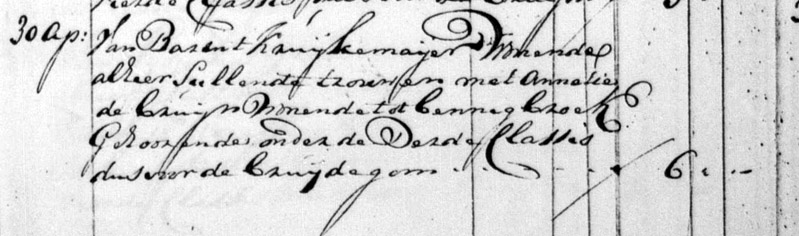 30 Ap: Jan Barent Kruijkemaijer Woonende
alhier Sullende trouwen met Annetie
de Bruijn Woonende tot Bennegbroek
Gehoorende onder de Derde Classis
dus voor de Bruijdegom . . . . 6 . . .